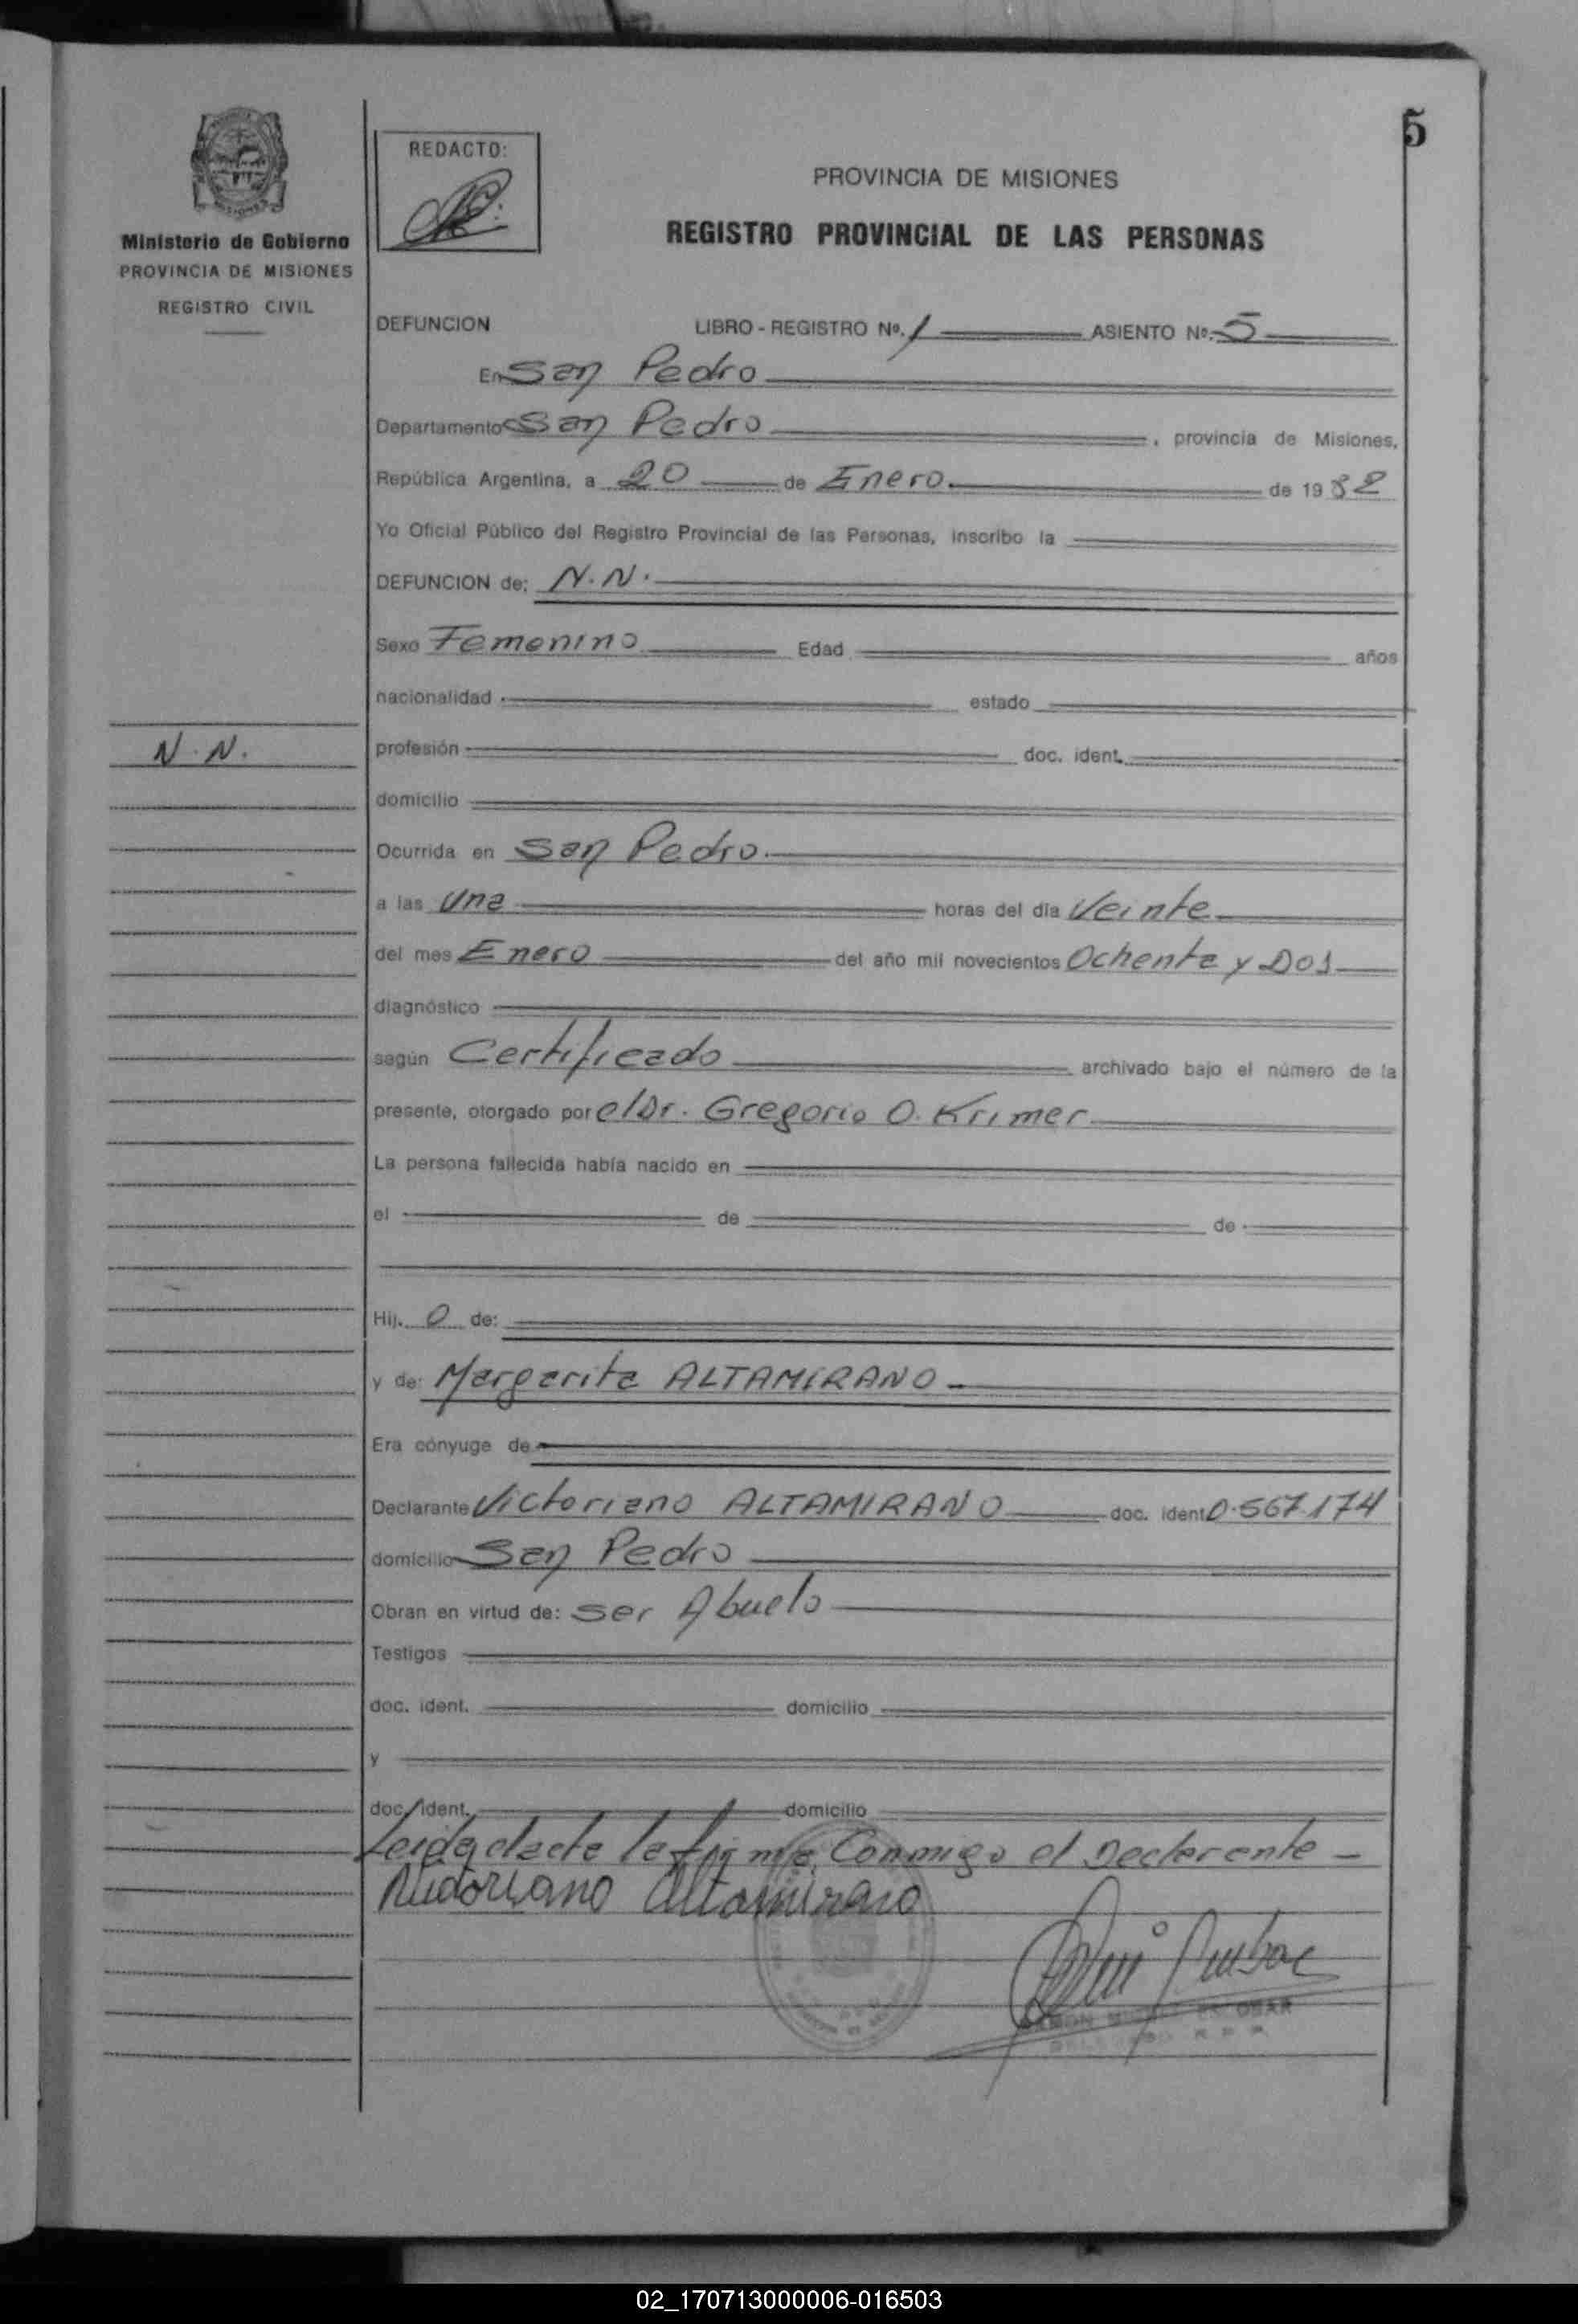 5
REDACTO:
PROVINCIA DE MISIONES
REGISTRO PROVINCIAL DE LAS PERSONAS
Ministerio de Gobierno
PROVINCIA DE MISIONES
REGISTRO CIVIL
DEFUNCION LIBRO - REGISTRO Nº. 1 ASIENTO Nº. 5
En San Pedro
Departamento San Pedro , provincia de Misiones,
República Argentina, a 20 de Enero de 19 82
Yo Oficial Público del Registro Provincial de las Personas, inscribo la
DEFUNCION de: N.N.
Sexo Femenino Edad años
nacionalidad estado
N.N.
profesión doc. ident.
domicilio
Ocurrida en San Pedro
a las Una horas del día Veinte
del mes Enero del año mil novecientos Ochenta y Dos
diagnóstico
según Certificado archivado bajo el número de la
presente, otorgado por el Dr. Gregorio O. Krimer
La persona fallecida había nacido en
el de de
Hij. O de:
y de: Margarita ALTAMIRANO
Era cónyuge de
Declarante Victoriano ALTAMIRANO doc. ident 0.567.174
domicilio San Pedro
Obran en virtud de: ser Abuelo
Testigos
doc. ident. domicilio
y
doc. ident. domicilio
Leida el acta la firma Conmigo el Declarante
Altamirano
ESCOBAR
02_170713000006-016503